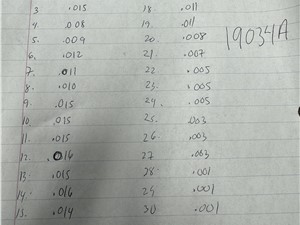 3 .015 18 .011
4 .008 19. .011
5. .009 20 .008 19034A
6. .012 21. .007
7. .011 22 .005
8. .010 23. .005
9. .015 24. .005
10. .015 25. .003
11. .015 26. .003
12. .016 27 .003
13. .015 28. .001
14. .016 29 .001
15. .014 30 .001